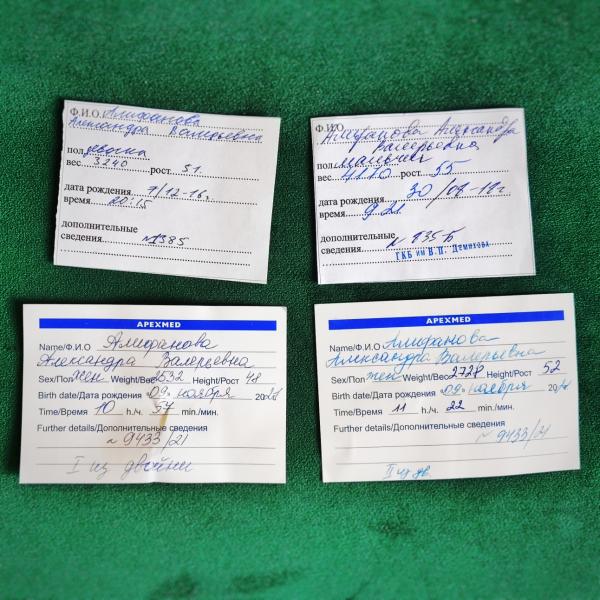 Ф.И.О. Алифанова
Александра Валерьевна
пол девочка
вес. 3240 рост. 51.
дата рождения 9/12-16г
время 20:15
дополнительные
сведения №1385
Ф.И.О. Алифанова Александра
Валерьевна
пол мальчик
вес. 4170 рост. 55
дата рождения 30/09-19г
время 9 21
дополнительные
сведения № 835-Б
ГКБ им В.П. Демихова
APEXMED
Name/Ф.И.О Алифанова
Александра Валерьевна
Sex/Пол жен Weight/Вес 2532 Height/Рост 48
Birth date/Дата рождения 09 ноября 2021
Time/Время 10 h./ч. 57 min./мин.
Further details/Дополнительные сведения
№ 9433/21
I из двойни
APEXMED
Name/Ф.И.О Алифанова
Александра Валерьевна
Sex/Пол жен Weight/Вес 2728 Height/Рост 52
Birth date/Дата рождения 09 ноября 2021
Time/Время 11 h./ч. 22 min./мин.
Further details/Дополнительные сведения
№ 9433/21
II из дв.